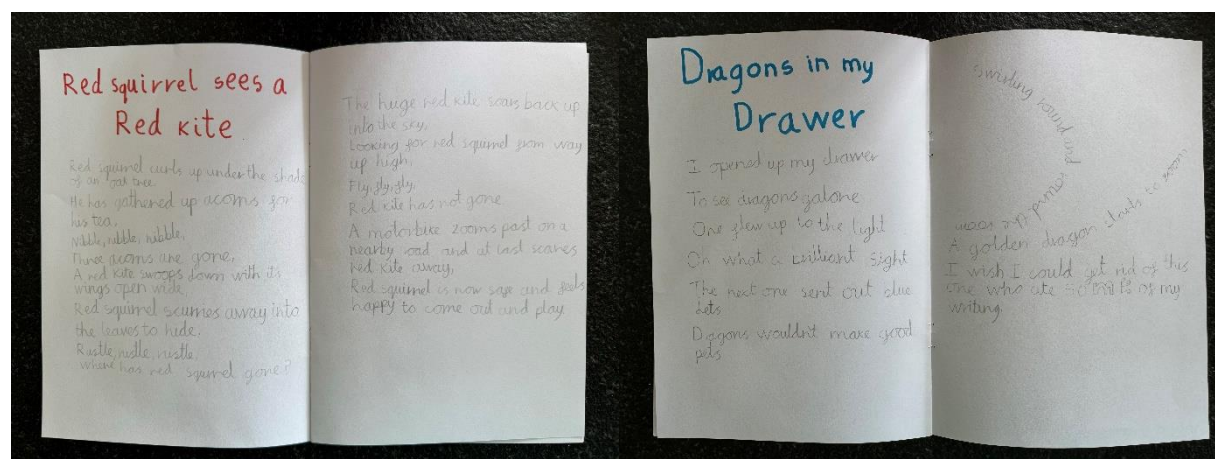 Red squirrel sees a
Red Kite
Red squirrel curls up under the shade
of an oak tree.
He has gathered up acorns for
his tea.
Nibble, nibble, nibble,
Three acorns are gone,
A red kite swoops down with its
wings open wide.
Red squirrel scurries away into
the leaves to hide.
Rustle, rustle, rustle,
where has red squirrel gone?
The huge red kite soars back up
into the sky,
Looking for red squirrel from way
up high,
Fly, fly, fly,
Red kite has not gone
A motorbike zooms past on a
nearby road and at last scares
red kite away,
Red squirrel is now safe and feels
happy to come out and play
Dragons in my
Drawer
I opened up my drawer
To see dragons galore
One flew up to the light
Oh what a brilliant sight
The next one sent out
Dragons wouldn't make good
pets
Swirling round and round the room
A golden dragon starts to zoom,
I wish I could get rid of this
one who ate of my
writing.